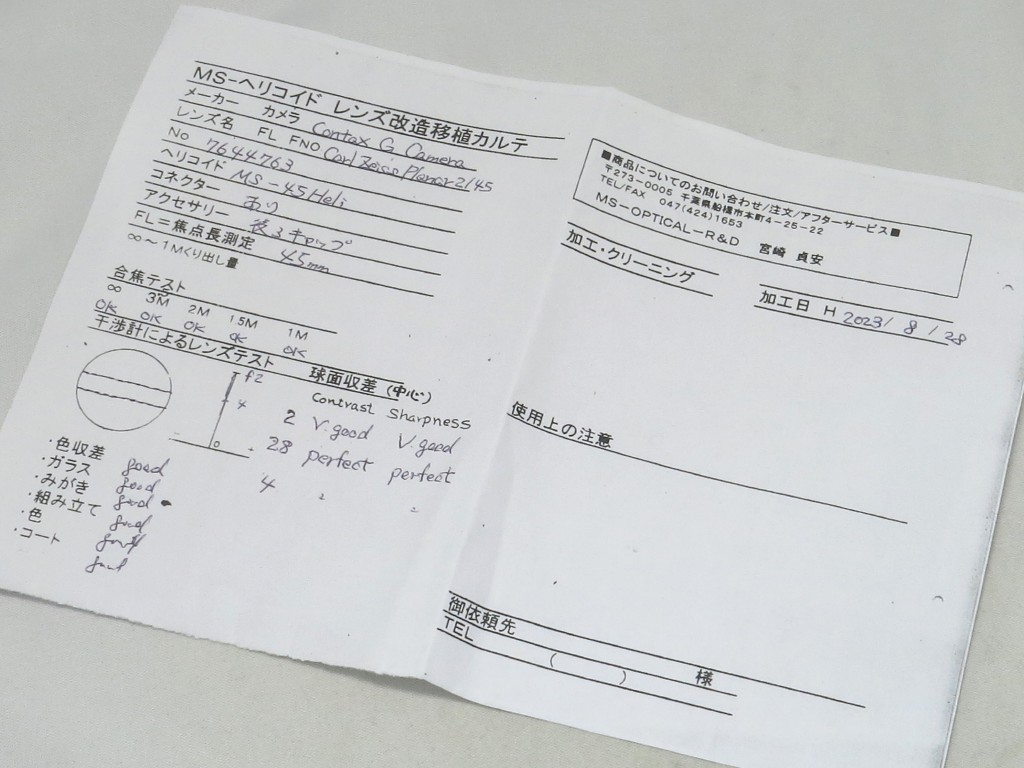 MS-ヘリコイド レンズ改造移植カルテ
メーカー カメラ Contax G Camera
レンズ名 FL FNO Carl Zeiss Planar 2/45
No 7644763
ヘリコイド MS-45 Heli
コネクター あり
アクセサリー 後ろキャップ
FL=焦点長測定 45mm
∞~1Mくり出し量
合焦テスト
∞ 3M 2M 1.5M 1M
OK OK OK OK OK
干渉計によるレンズテスト
球面収差 (中心)
f2
4
0
contrast sharpness
2 V.good V.good
28 perfect perfect
4 〃 〃
・色収差 good
・ガラス good
・みがき good
・組み立て good
・色 good
・コート good
■商品についてのお問い合わせ/注文/アフターサービス■
〒273-0005 千葉県船橋市本町4-25-22
TEL/FAX 047(424)1653
MS-OPTICAL-R&D 宮崎 貞安
加工・クリーニング
加工日 H 2023/8/28
使用上の注意
御依頼先 様
TEL ( )